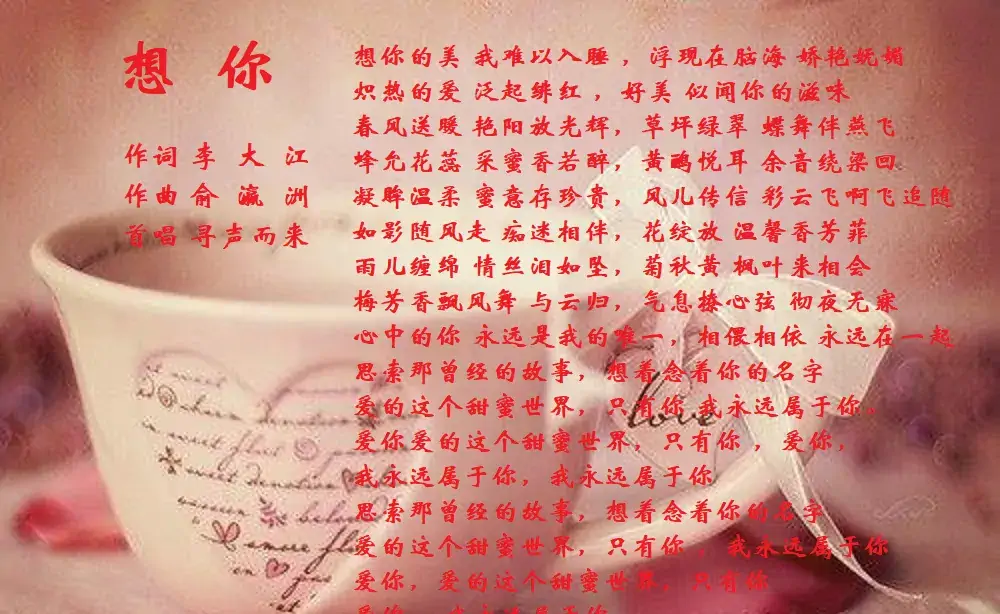 想 你
作词 李 大 江
作曲 俞 瀛 洲
首唱 寻声而来
想你的美 我难以入睡 ，浮现在脑海 娇艳妩媚
炽热的爱 泛起绯红 ，好美 似闻你的滋味
春风送暖 艳阳放光辉，草坪绿翠 蝶舞伴燕飞
蜂允花蕊 采蜜香若醉，黄鹂悦耳 余音绕梁回
凝眸温柔 蜜意存珍贵，风儿传信 彩云飞啊飞追随
如影随风走 痴迷相伴，花绽放 温馨香芳菲
雨儿缠绵 情丝泪如坠，菊秋黄 枫叶来相会
梅芳香飘风舞 与云归，气息撩心弦 彻夜无寐
心中的你 永远是我的唯一，相偎相依 永远在一起
思索那曾经的故事，想着念着你的名字
爱的这个甜蜜世界，只有你 我永远属于你。
爱你爱的这个甜蜜世界，只有你 ，爱你，
我永远属于你，我永远属于你
思索那曾经的故事，想着念着你的名字
爱的这个甜蜜世界，只有你 ，我永远属于你
爱你，爱的这个甜蜜世界，只有你
love